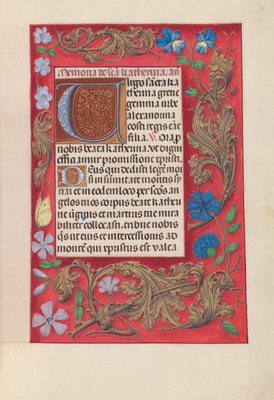 Memoria de sca katherina. an
Virgo sacta ka
therina grecie
gemma urbe
alexandrina
costi regis erat
filia. V. Ora p
nobis beata katherina. Ut digni
efficiamur promissione xpisti.
Deus qui dedisti legem moi
si in summitate montis sy
nai et in eodem loco per scos an
gelos tuos corpus beate kathe
rine virginis et martiris tue mira
biliter collocasti. tribue nobis
qs ut eius et intercessione ad
montem qui xpistus est valea